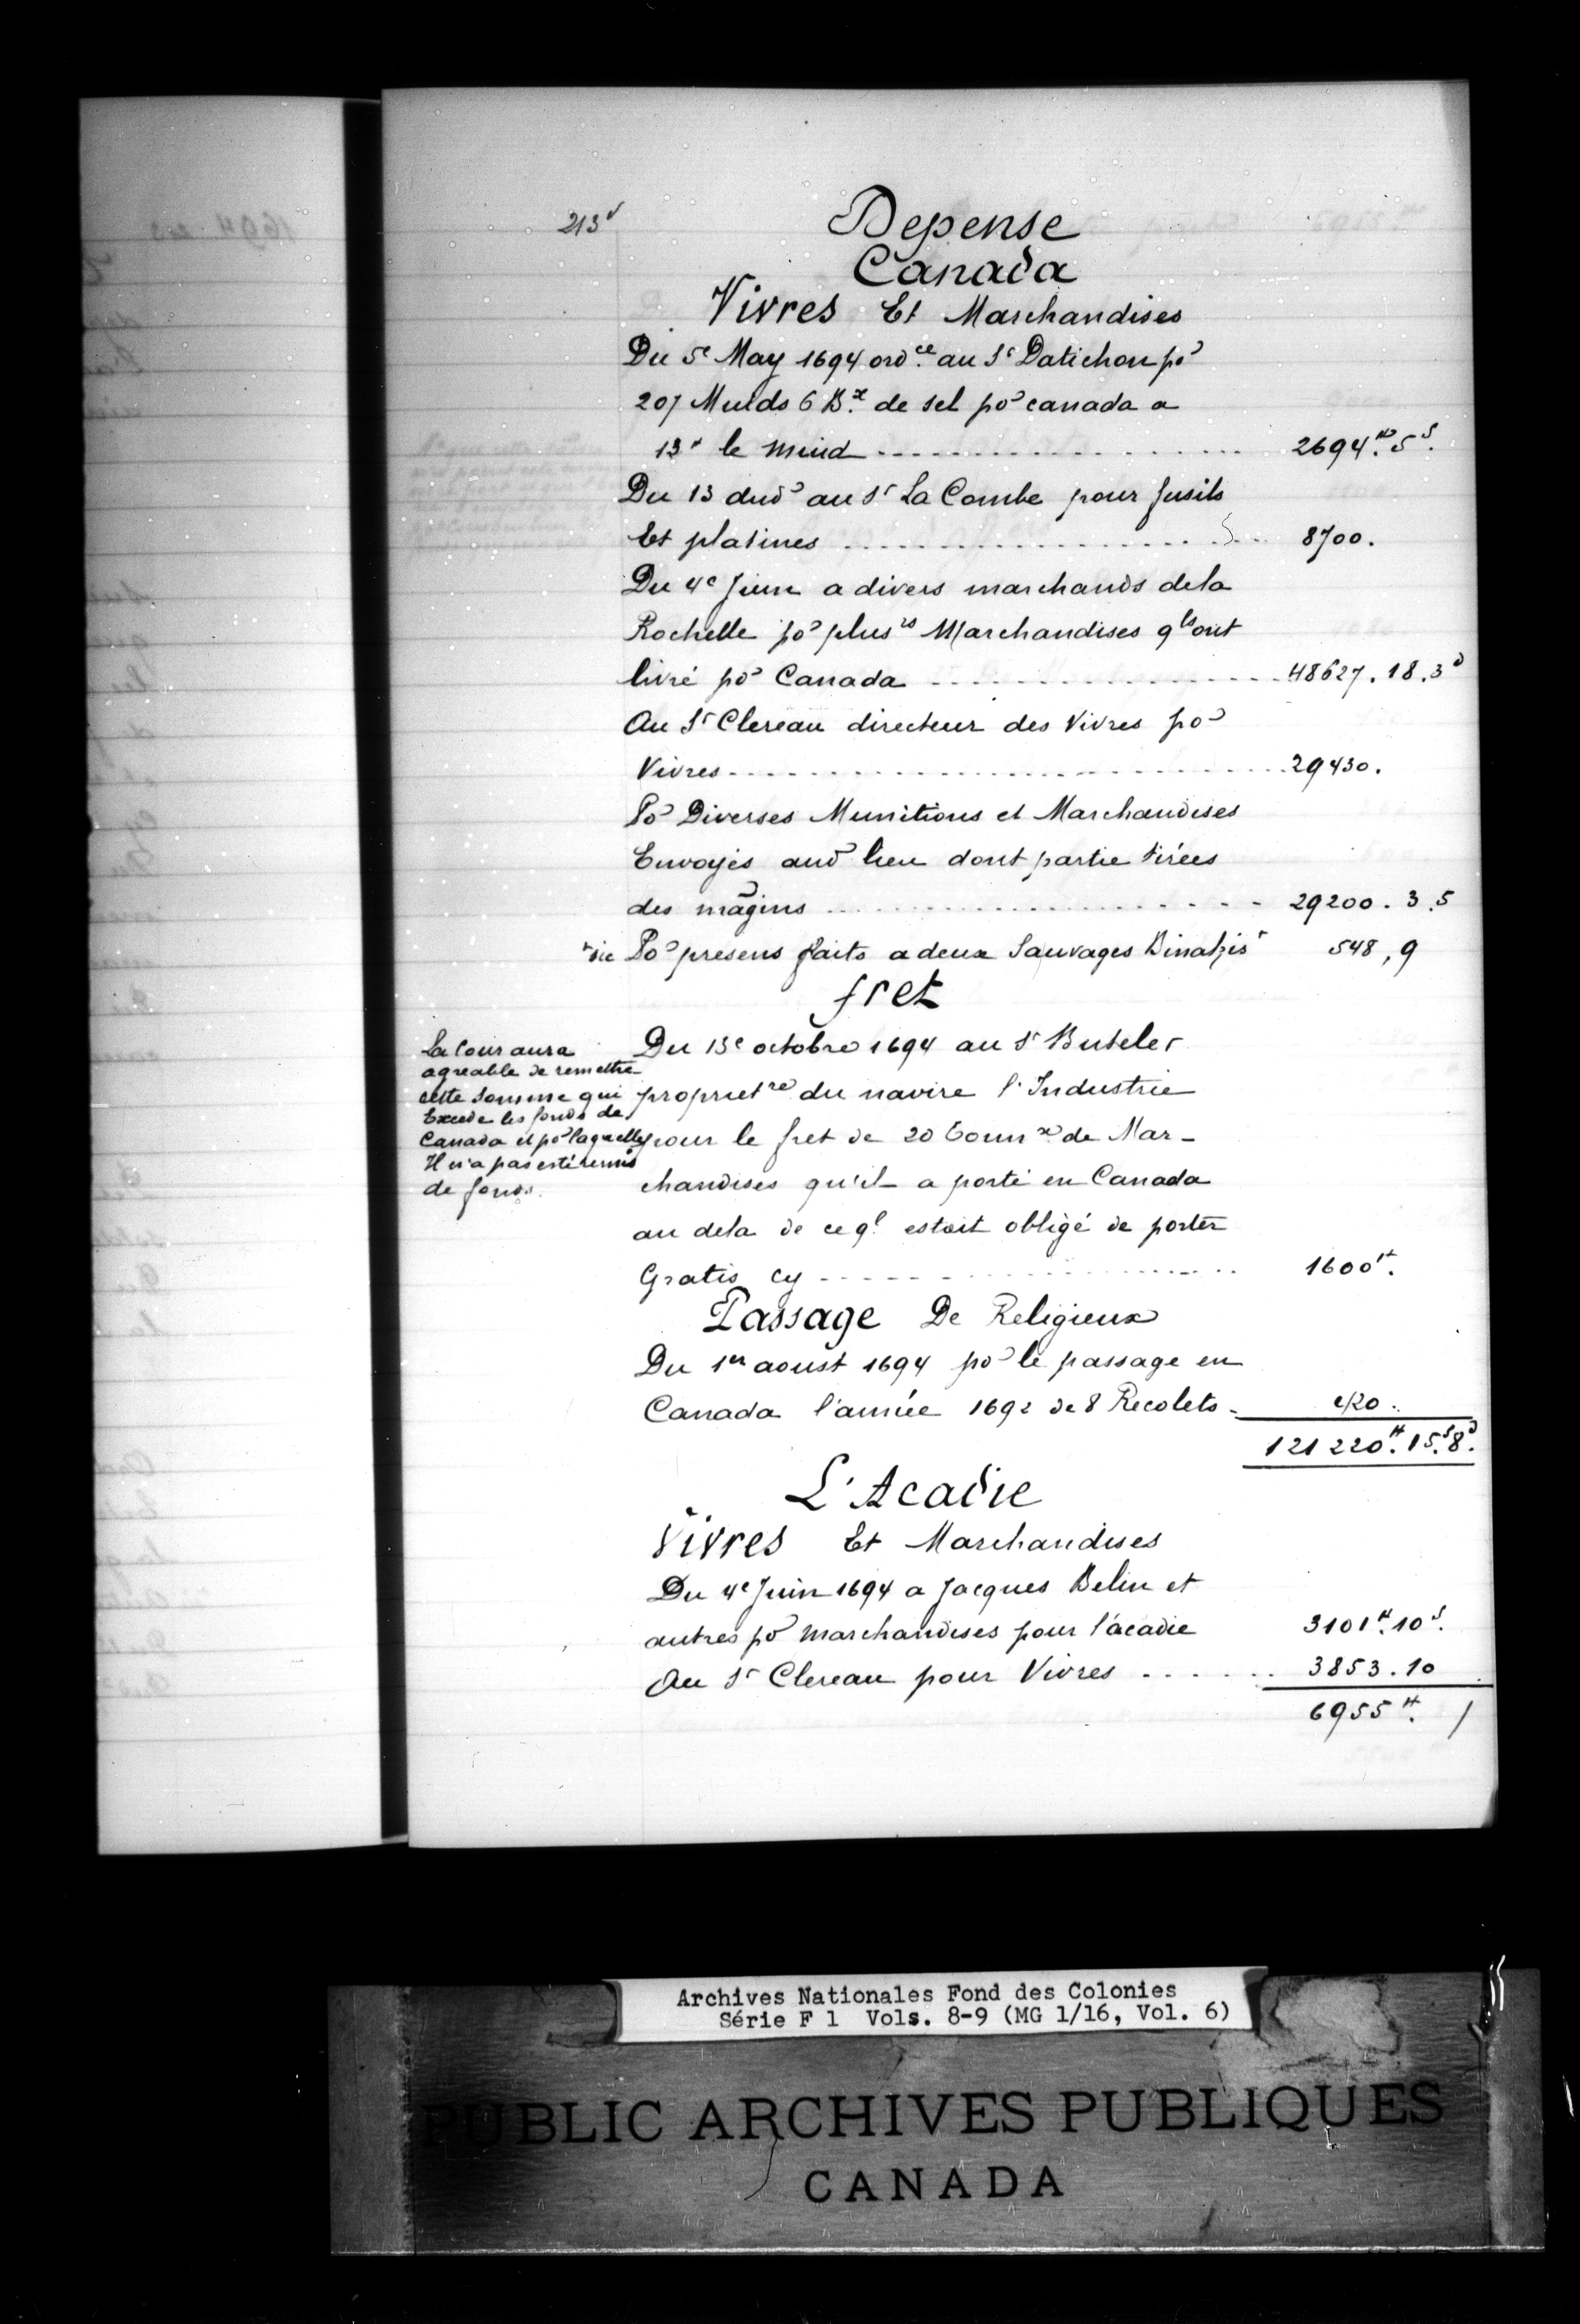 213v
Depense
Canada
Vivres Et Marchandises
Du 5e May 1694 ordce au Sr Datichon po
207 Muids 6 Bx de sel po canada a
13# le muid 2694# 5s
Du 13 dud au Sr La Combe pour fusils
Et platines 8700.
Du 4e Juin a divers marchands dela
Rochelle po plusrs Marchandises qls ont
livré po Canada 48627.18.3d
Au Sr Clereau directeur des Vivres po
Vivres 29430.
Po Diverses Munitions et Marchandises
Envoyés aud lieu dont partie tirées
des magins 29200.3.5
+sic Po presens faits a deux Sauvages Binakis+ 548,9
fret
Du 13e octobre 1694 au Sr Buteler
proprietre du navire l'Industrie
pour le fret de 20 tonnx de Mar-
chandises qu'il a porté en Canada
au dela de ce ql estoit obligé de porter
Gratis cy 1600#.
La Cour aura
agreable de remettre
cette somme qui
Excede les fonds de
Canada et po laquelle
Il n'a pas esté remis
de fonds.
Passage De Religieux
Du 1er aoust 1694 po le passage en
Canada l'année 1692 de 8 Recolets 420.
121220#.15s.8d.
L'Acadie
Vivres Et Marchandises
Du 4e Juin 1694 a Jacques Belin et
autres po marchandises pour l'acadie 3101#.10s.
Au Sr Clereau pour Vivres 3853.10
6955#. /
Archives Nationales Fond des Colonies
Série F 1 Vols. 8-9 (MG 1/16, Vol. 6)
PUBLIC ARCHIVES PUBLIQUES
CANADA